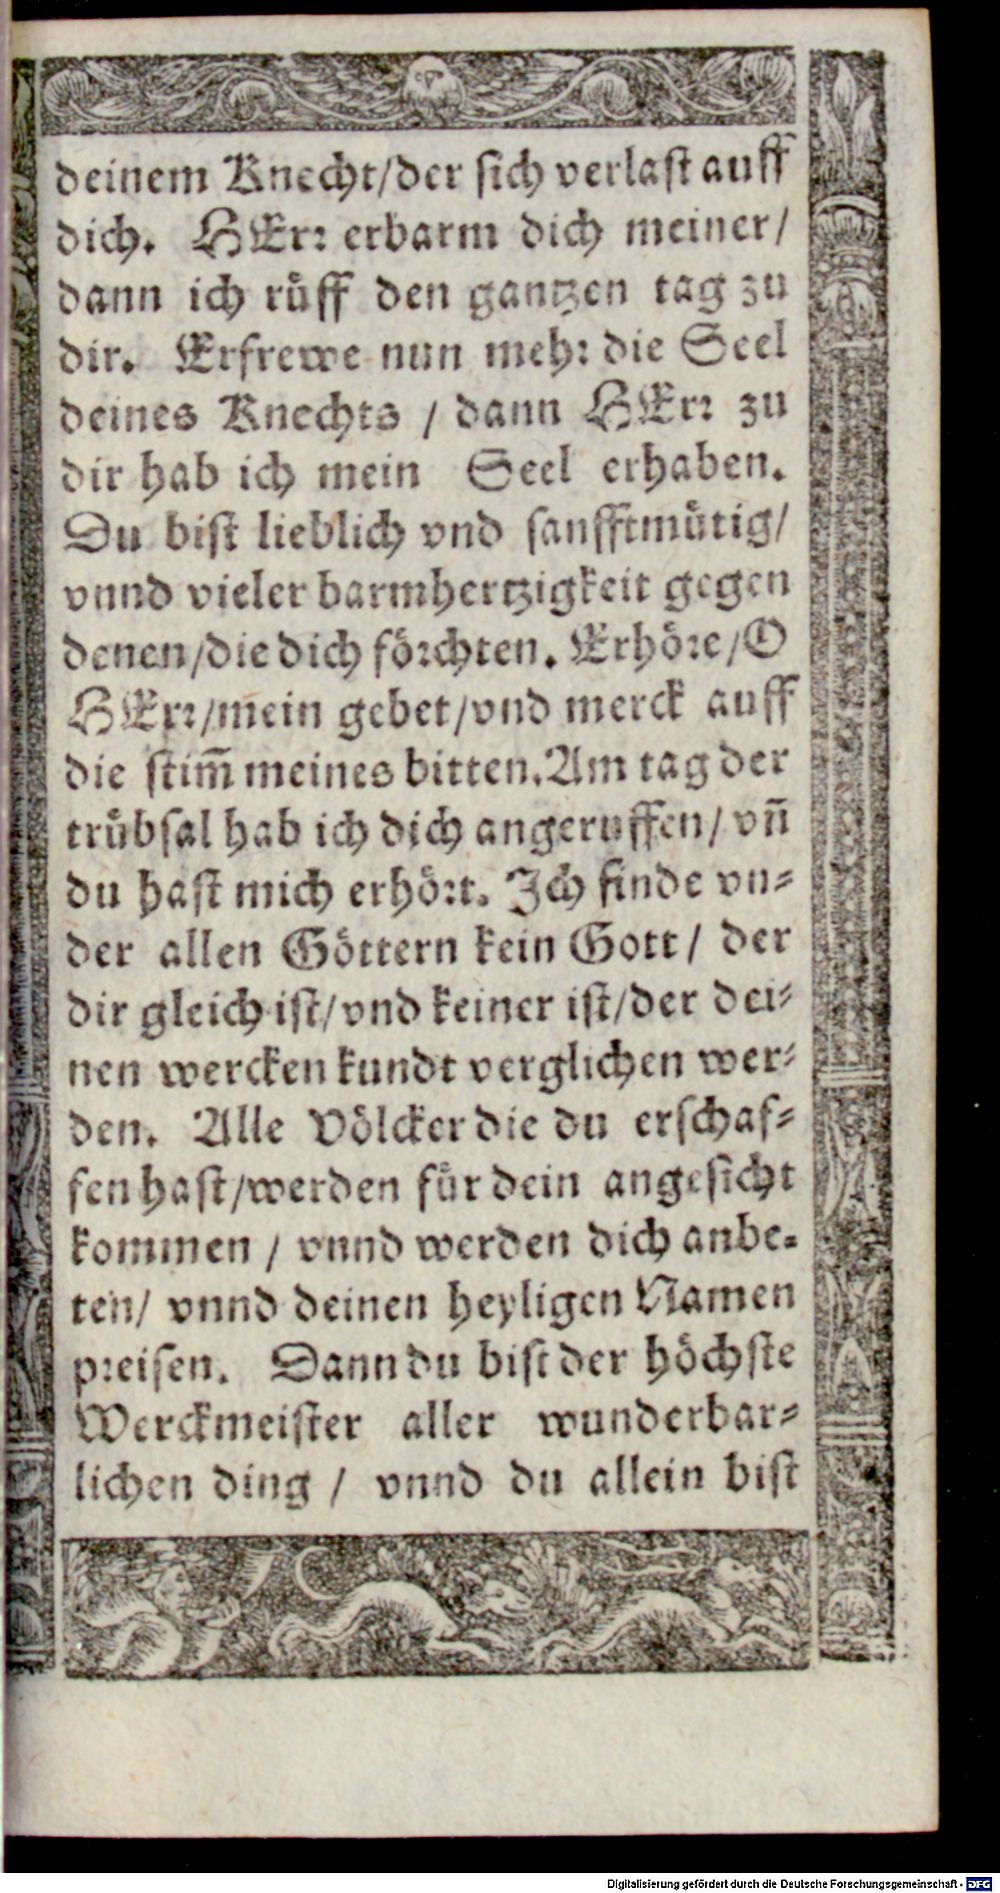 deinem Knecht/der sich verlast auff
dich. HErr erbarm dich meiner/
dann ich rüff den gantzen tag zu
dir. Erfrewe nun mehr die Seel
deines Knechts / dann HErr zu
dir hab ich mein Seel erhaben.
Du bist lieblich vnd sanfftmütig/
vnnd vieler barmhertzigkeit gegen
denen/die dich förchten. Erhöre/O
HErr/mein gebet/vnd merck auff
die stim̃ meines bitten. Am tag der
trübsal hab ich dich angeruffen/ vñ
du hast mich erhört. Ich finde vn-
der allen Göttern kein Gott/ der
dir gleich ist/vnd keiner ist/der dei-
nen wercken kundt verglichen wer-
den. Alle Völcker die du erschaf-
fen hast/werden für dein angesicht
kommen / vnnd werden dich anbe-
ten/ vnnd deinen heyligen Namen
preisen. Dann du bist der höchste
Werckmeister aller wunderbar-
lichen ding / vnnd du allein bist
Digitalisierung gefördert durch die Deutsche Forschungsgemeinschaft - DFG